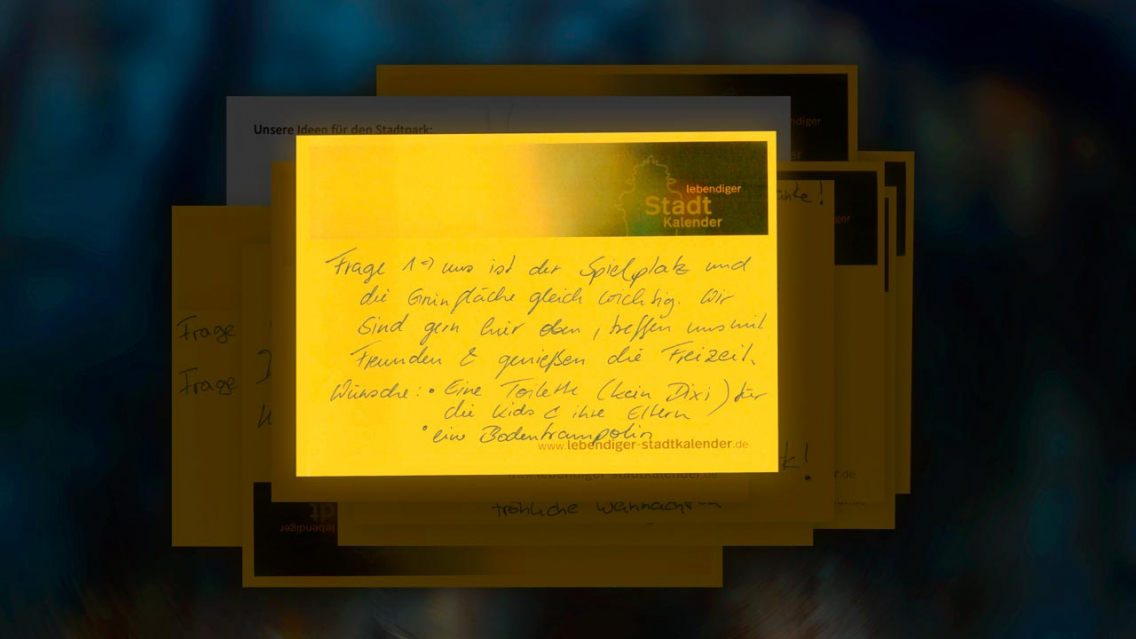 Unsere Ideen für den Stadtpark:
lebendiger
Stadt
Kalender
Frage 1 => uns ist der Spielplatz und
die Grünfläche gleich wichtig. Wir
Sind gern hier oben, treffen uns mit
Freunden & genießen die Freizeit.
Wünsche: • Eine Toilette (kein Dixi) für
die Kids & ihre Eltern
• eine Bodentrampolin
www.lebendiger-stadtkalender.de
Frage
Frage
fröhliche Weihnachten
lebendiger